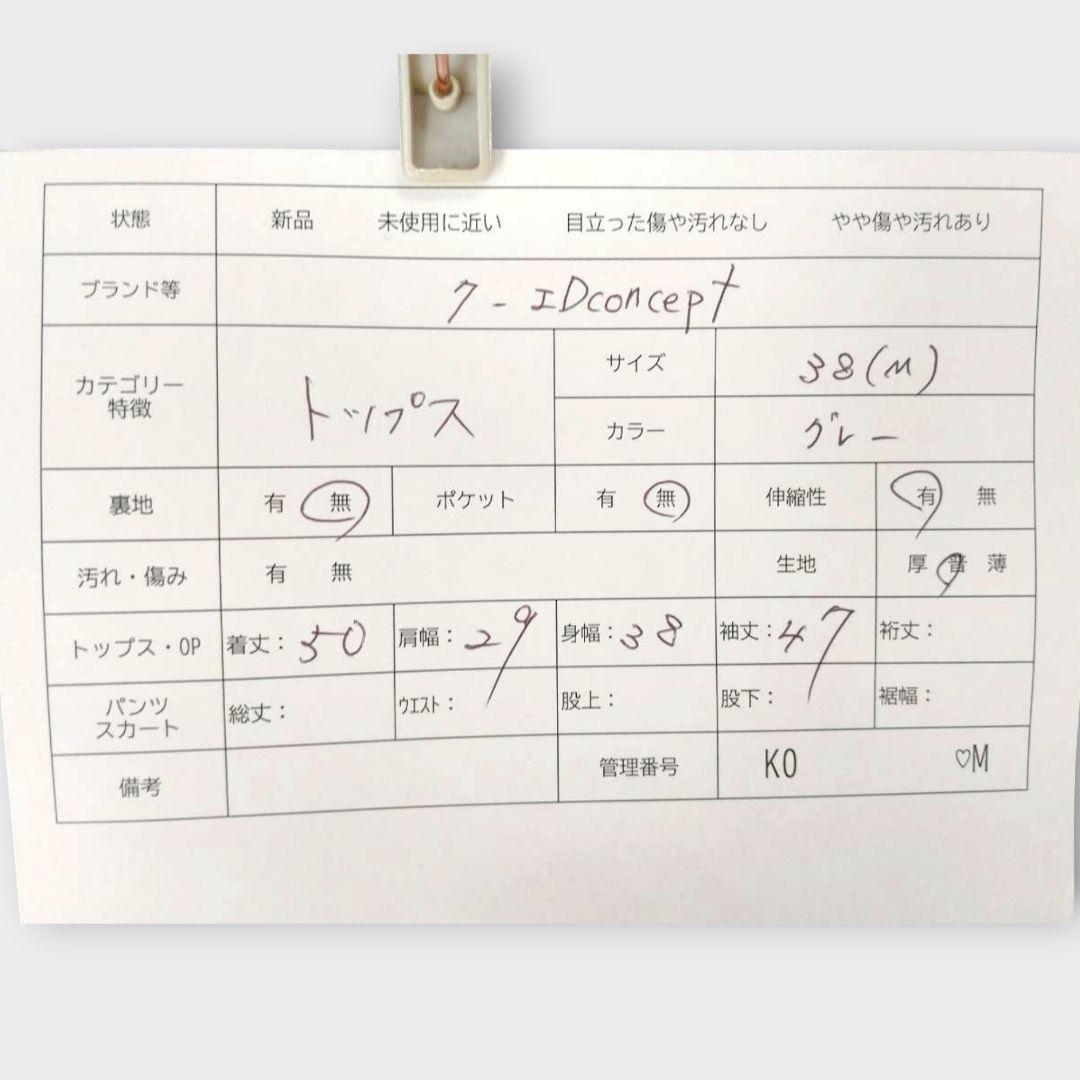 状態 新品 未使用に近い 目立った傷や汚れなし やや傷や汚れあり
ブランド等 7-IDconcept
カテゴリー 特徴 トップス サイズ 38(M)
カラー グレー
裏地 有 無 ポケット 有 無 伸縮性 有 無
汚れ・傷み 有 無 生地 厚 普 薄
トップス・OP 着丈:50 肩幅:29 身幅:38 袖丈:47 裄丈:
パンツ スカート 総丈: ウエスト: 股上: 股下: 裾幅:
備考 管理番号 KO ♡M